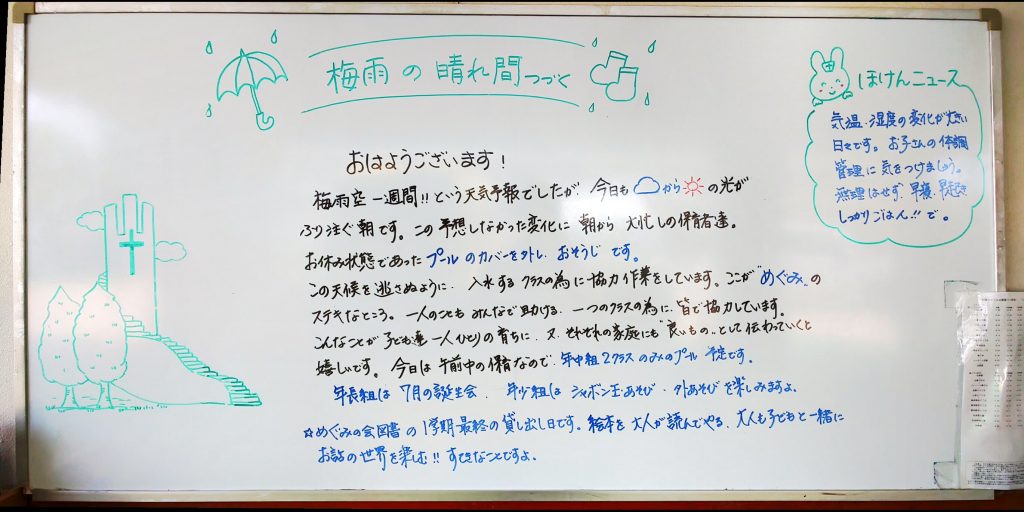 梅雨の晴れ間つづく
おはようございます!
梅雨空一週間!!という天気予報でしたが、今日も☁から☀の光が
ふり注ぐ朝です。この予想しなかった変化に朝から大忙しの保育者達。
お休み状態であったプールのカバーを外し、おそうじです。
この天候を逃さぬように、入水するクラスの為に協力作業をしています。ここが"めぐみ"の
ステキなところ。一人のことも みんなで助ける、一つのクラスの為に、皆で協力しています。
こんなことが子ども達一人ひとりの育ちに、又、それぞれの家庭にも"良いもの"として伝わっていくと
嬉しいです。今日は午前中の保育なので、年中組2クラスのみのプール予定です。
年長組は7月の誕生会、年少組はシャボン玉あそび・外あそびを楽しみますよ。
☆めぐみの会図書の1学期最終の貸し出し日です。絵本を大人が読んでやる、大人も子どもと一緒に
お話の世界を楽しむ!!すてきなことですよ。
ほけんニュース
気温・湿度の変化が大きい
日々です。お子さんの体調
管理に気をつけましょう。
無理はせず、早寝、早起き
しっかりごはん!!で。